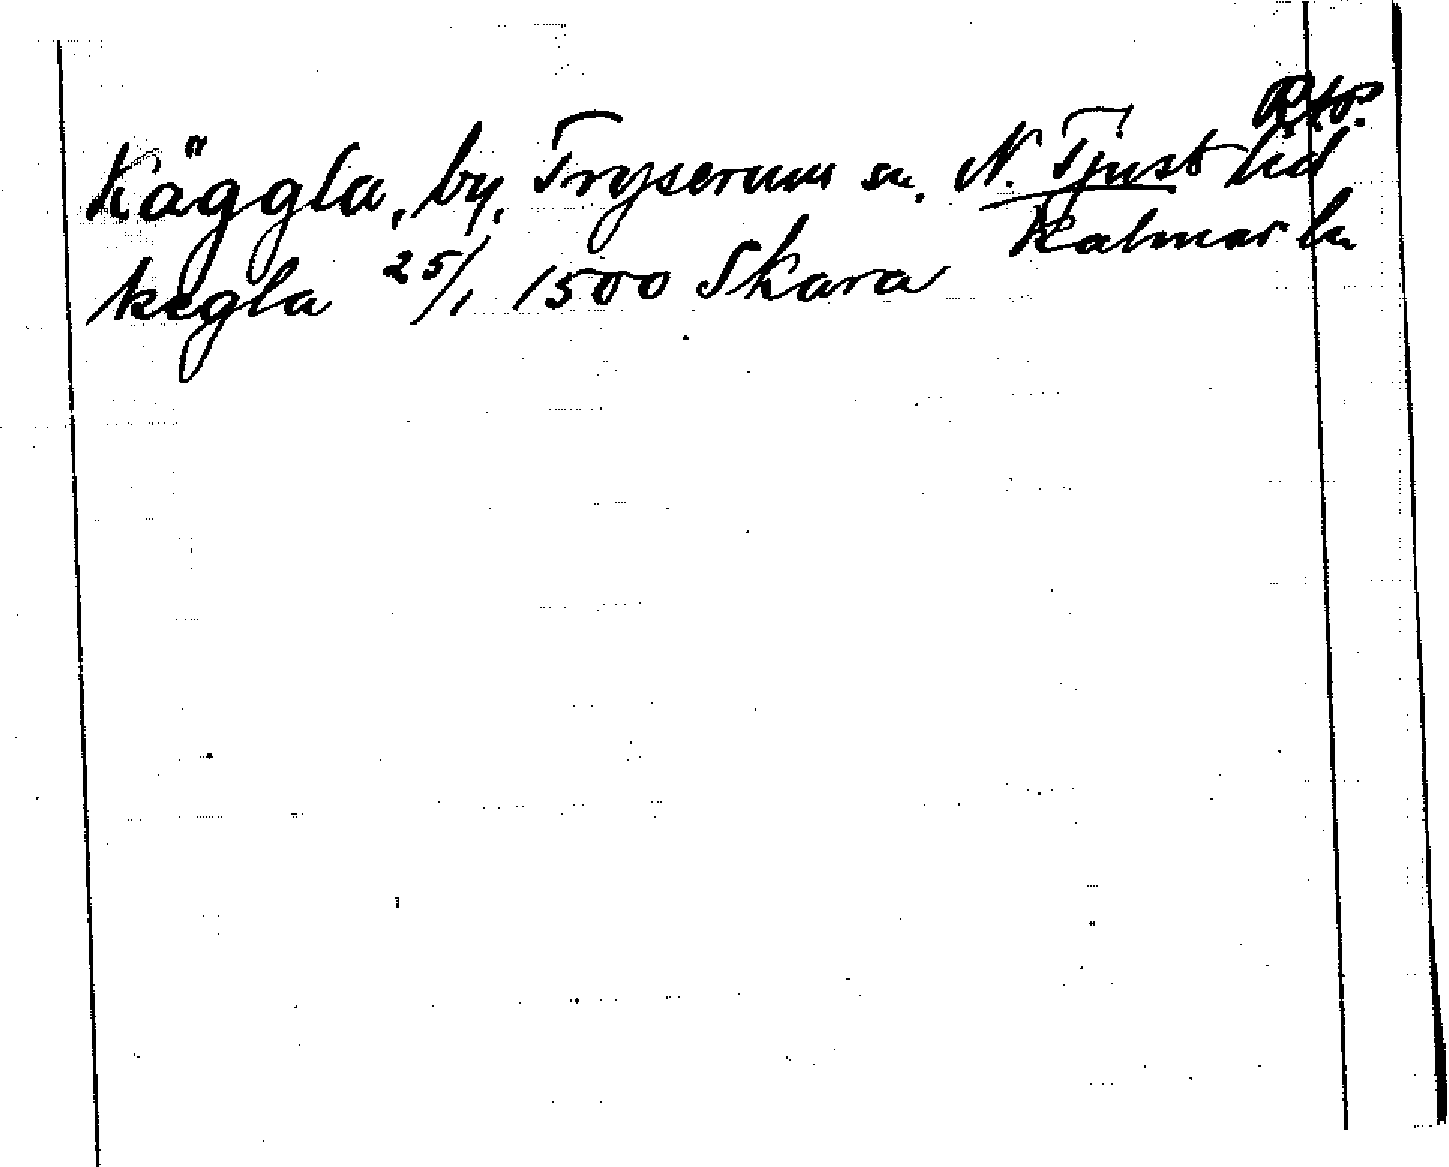 Käggla, by, Tryserum sn. N. Tjust hd
Kalmar ln
kegla 25/1 1500 Skara